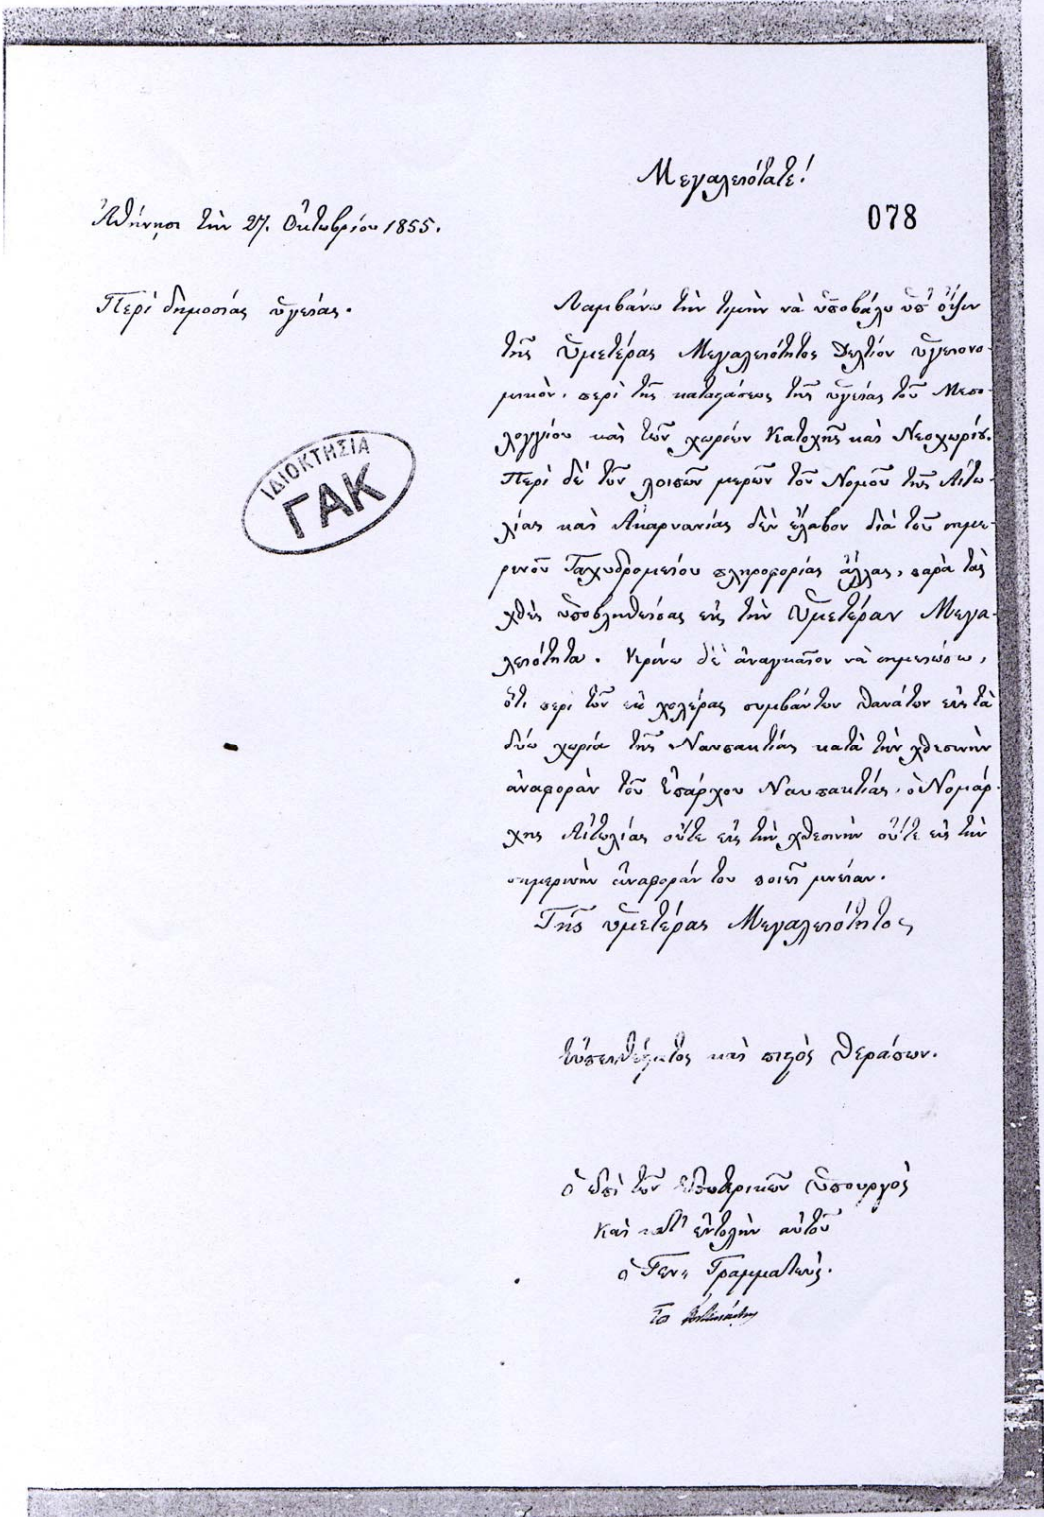 Μεγαλειότατε!
078
Ἀθήνησι τὴν 27. Ὀκτωβρίου 1855.
Περὶ δημοσίας ὑγείας.
Λαμβάνω τὴν τιμὴν νὰ ὑποβάλω ὑπ' ὄψιν
τῆς Ὑμετέρας Μεγαλειότητος Δελτίον ὑγειονο-
μικὸν, περὶ τῆς καταστάσεως τῆς ὑγείας τοῦ Μεσο-
λογγίου καὶ τῶν χωρίων Κατοχῆς καὶ Νεοχωρίου.
Περὶ δὲ τῶν λοιπῶν μερῶν τοῦ Νομοῦ τῆς Αἰτω-
λίας καὶ Ἀκαρνανίας δὲν ἔλαβον διὰ τοῦ σημε-
ρινοῦ Ταχυδρομείου πληροφορίας ἄλλας, παρὰ τὰς
χθὲς ὑποβληθείσας εἰς τὴν Ὑμετέραν Μεγα-
λειότητα. Κρίνω δὲ ἀναγκαῖον νὰ σημειώσω,
ὅτι περὶ τῶν ἐκ χολέρας συμβάντων θανάτων εἰς τὰ
δύω χωρία τῆς Ναυπακτίας κατὰ τὴν χθεσινὴν
ἀναφορὰν τοῦ Ἐπάρχου Ναυπακτίας, ὁ Νομάρ-
χης Αἰτωλίας οὔτε εἰς τὴν χθεσινὴν οὔτε εἰς τὴν
σημερινὴν ἀναφοράν του ποιεῖ μνείαν.
Τῆς ὑμετέρας Μεγαλειότητος
Εὐπειθέστατος καὶ πιστὸς θεράπων.
ὁ ἐπὶ τῶν Ἐσωτερικῶν Ὑπουργὸς
καὶ κατ' ἐντολὴν αὐτοῦ
ὁ Γεν. Γραμματεύς.
ΙΔΙΟΚΤΗΣΙΑ
ΓΑΚ